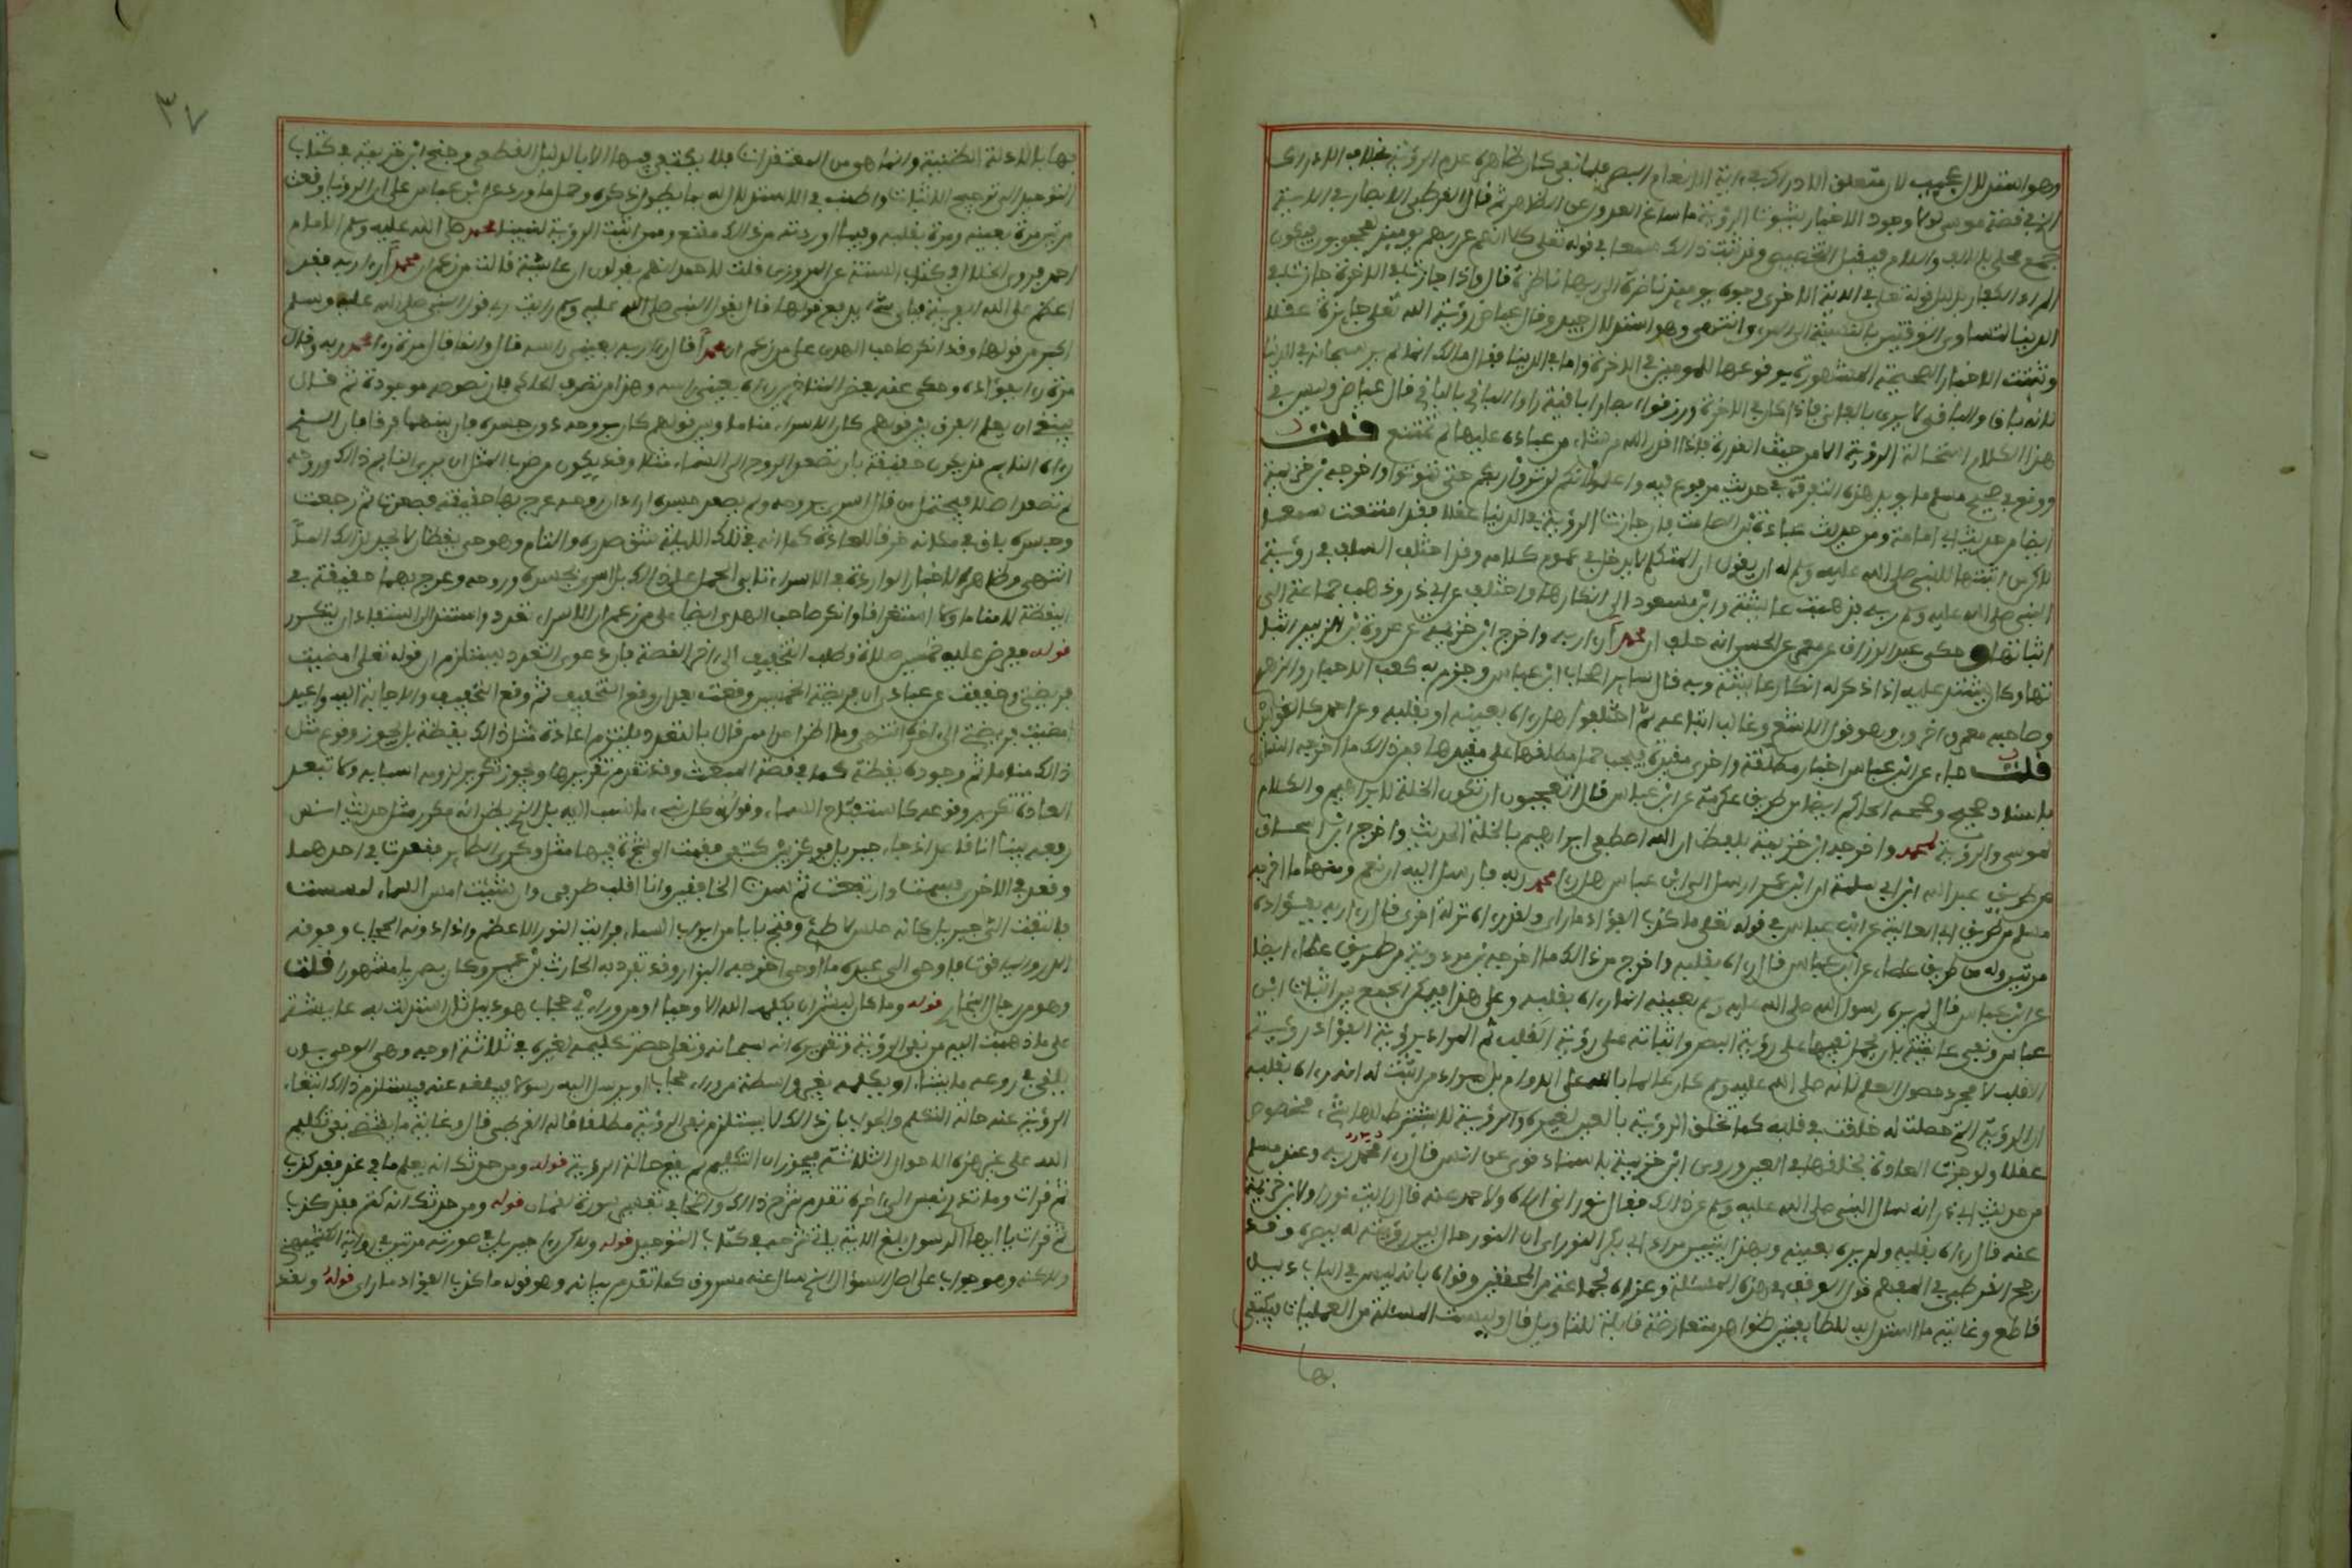 وهو استدلال عجيب لان متعلق الادراك في اية الانعام البصر فلما نفي كان ظاهره عدم الرؤية بخلاف الادراك
الذي في قصة موسى ولولا وجود الاخبار بثبوت الرؤية ما ساغ العدول عن الظاهر ثم قال القرطبي الابصار في الاية
جمع محلى بالالف واللام فيقبل التخصيص وقد ثبت ذلك سمعا في قوله تعلى كلا انهم عن ربهم يومئذ لمحجوبون فيكون
المراد الكفار بدليل قوله تعلى في الاية الاخرى وجوه يومئذ ناضرة الى ربها ناظرة قال واذا جازت في الاخرة جازت في
الدنيا لتساوي الوقتين بالنسبة الى المرءي انتهى وهو استدلال جيد وقال عياض رؤية الله تعلى جايزة عقلا
وثبتت الاخبار الصحيحة المشهورة بوقوعها للمومنين في الاخرة واما في الدنيا فقال مالك انما لم ير سبحانه في الدنيا
لانه باق والباقي لا يرى بالفاني فاذا كان في الاخرة ورزقوا ابصارا باقية راوا الباقي بالباقي قال عياض وليس في
هذا الكلام استحالة الرؤية الا من حيث القدرة فاذا اقدر الله من شاء من عباده عليها لم تمتنع قلت
ووقع في صحيح مسلم ما يؤيد هذه التفرقة في حديث مرفوع فيه واعلموا انكم لن تروا ربكم حتى تموتوا واخرجه ابن خزيمة
ايضا من حديث ابي امامة ومن حديث عبادة بن الصامت فان جازت الرؤية في الدنيا عقلا فقد امتنعت سمعا
لاكن من اثبتها للنبي صلى الله عليه وسلم له ان يقول ان المتكلم لا يدخل في عموم كلامه وقد اختلف السلف في رؤية
النبي صلى الله عليه وسلم ربه فذهبت عائشة وابن مسعود الى انكارها واختلف عن ابي ذر وذهب جماعة الى
اثباتها وحكى عبد الرزاق عن معمر عن الحسن انه حلف ان محمدا رءا ربه واخرج ابن خزيمة عن عروة بن الزبير اثبا
تها وكان يشتد عليه اذا ذكر له انكار عائشة وبه قال ساير اصحاب ابن عباس وجزم به كعب الاحبار والزهري
وصاحبه معمر واخرون وهو قول الاشعري وغالب اتباعه ثم اختلفوا هل رءاه بعينه او بقلبه وعن احمد كالقولين
قلت جاءت عن ابن عباس اخبار مطلقة واخرى مقيدة فيجب حمل مطلقها على مقيدها فمن ذلك ما اخرجه النسائي
باسناد صحيح وصححه الحاكم ايضا من طريق عكرمة عن ابن عباس قال اتعجبون ان تكون الخلة لابراهيم والكلام
لموسى والرؤية لمحمد واخرجه ابن خزيمة بلفظ ان الله اصطفى ابراهيم بالخلة الحديث واخرج ابن اسحاق
من طريق عبد الله ابن ابي سلمة ان ابن عمر ارسل الى ابن عباس هل رءا محمد ربه فارسل اليه ان نعم ومنها ما اخرجه
مسلم من طريق ابي العالية عن ابن عباس في قوله تعلى ما كذب الفؤاد ما رأى ولقد رءاه نزلة اخرى قال رءا ربه بفؤاده
مرتين وله من طريق عطاء عن ابن عباس قال رءاه بقلبه واخرج من ذلك ما اخرجه ابن مردوية من طريق عطاء ايضا
عن ابن عباس قال لم يره رسول الله صلى الله عليه وسلم بعينه انما رءاه بقلبه وعلى هذا فيمكن الجمع بين اثبات ابن
عباس ونفي عائشة بان يحمل نفيها على رؤية البصر واثباته على رؤية القلب ثم المراد برؤية الفؤاد رؤية
القلب لا مجرد حصول العلم لانه صلى الله عليه وسلم كان عالما بالله على الدوام بل مراد من اثبت له انه رءاه بقلبه
ان الرؤية التي حصلت له خلقت في قلبه كما تخلق الرؤية بالعين لغيره والرؤية لا يشترط لها شيء مخصوص
عقلا ولو جرت العادة بخلقها في العين وروى ابن خزيمة باسناد قوي عن انس قال رءا محمد ربه وعند مسلم
من حديث ابي ذر انه سال النبي صلى الله عليه وسلم عن ذلك فقال نور انى اراه ولاحمد عنه قال رايت نورا ولابن خزيمة
عنه قال رءاه بقلبه ولم يره بعينه وبهذا يتبين مراد ابي ذر بذكر النور اي ان النور حال بين رؤيته له ببصره وقد
رجح القرطبي في المفهم قول الوقف في هذه المسئلة وعزاه لجماعة من المحققين وقواه بانه ليس في الباب دليل
قاطع وغاية ما استدل به للطايفتين ظواهر متعارضة قابلة للتاويل قال وليست المسئلة من العمليات فيكتفى
بها
٣٧
بها بالادلة الظنية وانما هي من المعتقدات فلا يكتفى فيها الا بالدليل القطعي وجنح ابن خزيمة في كتاب
التوحيد الى ترجيح الاثبات واطنب في الاستدلال له بما يطول ذكره وحمل ما ورد عن ابن عباس على ان الرؤيا وقعت
مرتين مرة بعينه ومرة بقلبه وفيما اوردته من ذلك مقنع وممن اثبت الرؤية لنبينا محمد صلى الله عليه وسلم الامام
احمد فروى الخلال في كتاب السنة عن المروزي قلت لاحمد انهم يقولون ان عائشة قالت من زعم ان محمدا رءا ربه فقد
اعظم على الله الفرية فباي شيء يدفع قولها قال بقول النبي صلى الله عليه وسلم رايت ربي قول النبي صلى الله عليه وسلم
اكبر من قولها وقد انكر صاحب الهدى على من زعم ان محمدا قال رءا ربه بعيني راسه قال وانما قال مرة رءا محمد ربه وقال
مرة رءا بفؤاده وحكى عنه بعض المتاخرين رءاه بعيني راسه وهذا من تصرف الحاكي فان نصوصه موجودة ثم قال
ينبغي ان يعلم الفرق بين قولهم كان الاسراء مناما وبين قولهم كان بروحه دون جسده فان بينهما فرقا فان الذي
رءاه النايم قد يكون حقيقة بان تصعد الروح الى السماء مثلا وقد يكون من ضرب المثل ان يرى النايم ذلك وروحه
لم تصعد اصلا فيحتمل من قال اسري بروحه ولم يصعد جسده اراد ان روحه عرج بها حقيقة فصعدت ثم رجعت
وجسده باق في مكانه خرقا للعادة كما انه في تلك الليلة شق صدره والتام وهو حي يقظان لا يجد لذلك الما
انتهى وظاهر الاخبار الواردة في الاسراء تابى الحمل على ذلك بل اسري بجسده وروحه وعرج بهما حقيقة في
اليقظة لا مناما ولا استغراقا وانكر صاحب الهدى ايضا على من زعم ان الاسراء تعدد واستند الى استبعاد ان يتكرر
قوله ففرض عليه خمسين صلاة وطلب التخفيف الى اخر القصة فان دعوى التعدد يستلزم ان قوله تعلى امضيت
فريضتي وخففت عن عبادي ان فريضة الخمسين وقعت بعد ان وقع التخفيف ثم وقع التخفيف والاجابة اليه واعيد
امضيت فريضتي الى اخره انتهى وما اظن احدا ممن قال بالتعدد يلتزم اعادة مثل ذلك يقظة بل يجوز وقوع مثل
ذلك مناما ثم وجوده يقظة كما في قصة المبعث وقد تقدم تقريرها ويجوز تكرير لزوم اسبابه ولا تبعد
العادة تكرير وقوعه كاستفتاح السماء وقول كل نبي ما نسب اليه بل الذي يظن انه مكرر مثل حديث انس
رفعه بينا انا قاعد اذ جاء جبريل فوكز بين كتفي فقمت الى شجرة فيها مثل وكري الطاير فقعدت في احدهما
وقعد في الاخرى فسمت وارتفعت حتى سدت الخافقين وانا اقلب طرفي ولو شئت امس السماء لمسست
فالتفت الى جبريل كانه حلس لاطئ وفتح باب من ابواب السماء فرايت النور الاعظم واذا دونه الحجاب وفوقه
الدر والياقوت فاوحى الى عبده ما اوحى اخرجه البزار وقد تفرد به الحارث بن عمير وكان بصريا مشهورا قلت
وهو من رجال البخاري قوله وما كان لبشر ان يكلمه الله الا وحيا او من وراء حجاب هو دليل ثان استدلت به عائشة
على ما ذهبت اليه من نفي الرؤية وتقريره انه سبحانه وتعلى حصر تكليمه لغيره في ثلاثة اوجه وهي الوحي بان
يلقي في روعه ما يشاء او يكلمه بغير واسطة من وراء حجاب او يرسل اليه رسولا فيبلغه عنه فيستلزم ذلك انتفاء
الرؤية عنه حالة التكلم والجواب بان ذلك لا يستلزم نفي الرؤية مطلقا قاله القرطبي قال وغاية ما يقتضي نفي تكليم
الله على غير هذه الاحوال الثلاثة فيجوز ان التكليم لم يقع حالة الرؤية قوله ومن حدثك انه يعلم ما في غد فقد كذب
ثم قرات وما تدري نفس الى اخره تقدم شرح ذلك واضحا في تفسير سورة لقمان قوله ومن حدثك انه كتم فقد كذب
ثم قرات يا ايها الرسول بلغ الاية ياتي شرحه في كتاب التوحيد قوله ولاكن رءا جبريل في صورته مرتين في رواية الكشميهني
ولاكنه وهو جواب عن اصل السؤال الذي سال عنه مسروق كما تقدم بيانه وهو قوله ما كذب الفؤاد ما رأى قوله ولقد